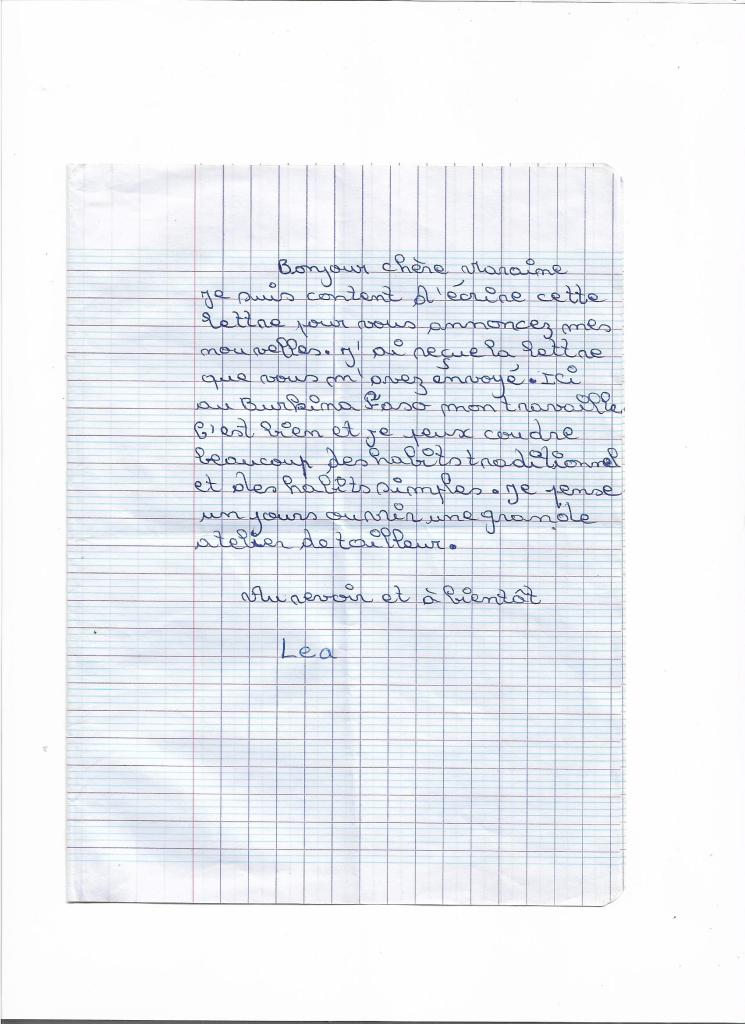 Bonjour chère Maraine
je suis content d'écrire cette
lettre pour vous annoncez mes
nouvelles. j'ai reçue la lettre
que vous m'avez envoyé. Ici
au Burkina Faso mon travaille
c'est bien et je peux coudre
beaucoup des habits traditionnel
et des habits simples. je pense
un jours ouvrir une grande
atelier de tailleur.
Au revoir et à bientôt
Lea